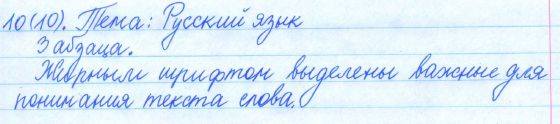 10(10). Тема: Русский язык
3 абзаца.
Жирным шрифтом выделены важные для
понимания текста слова.